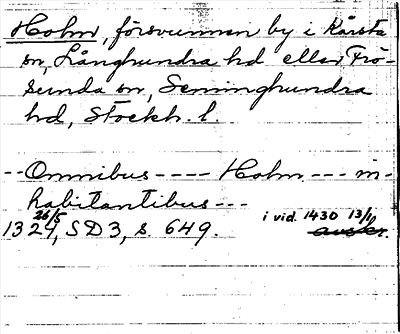 Holm, försvunnen by i Kårsta
sn, Långhundra hd eller Frö-
sunda sn, Seminghundra
hd, Stockh. l.
-- Omnibus ---- Holm --- in-
habitantibus ---
26/5
1329, SD3, s. 649.
i vid. 1430 13/11
avskr.